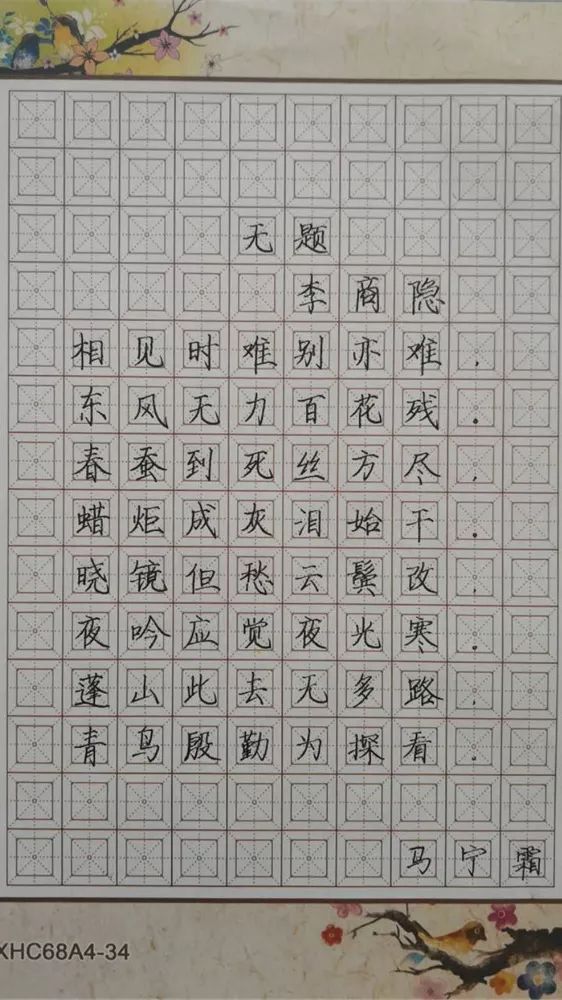 无题
李商隐
相见时难别亦难，
东风无力百花残．
春蚕到死丝方尽，
蜡炬成灰泪始干．
晓镜但愁云鬓改，
夜吟应觉夜光寒．
蓬山此去无多路，
青鸟殷勤为探看．
马宁霜
XHC68A4-34